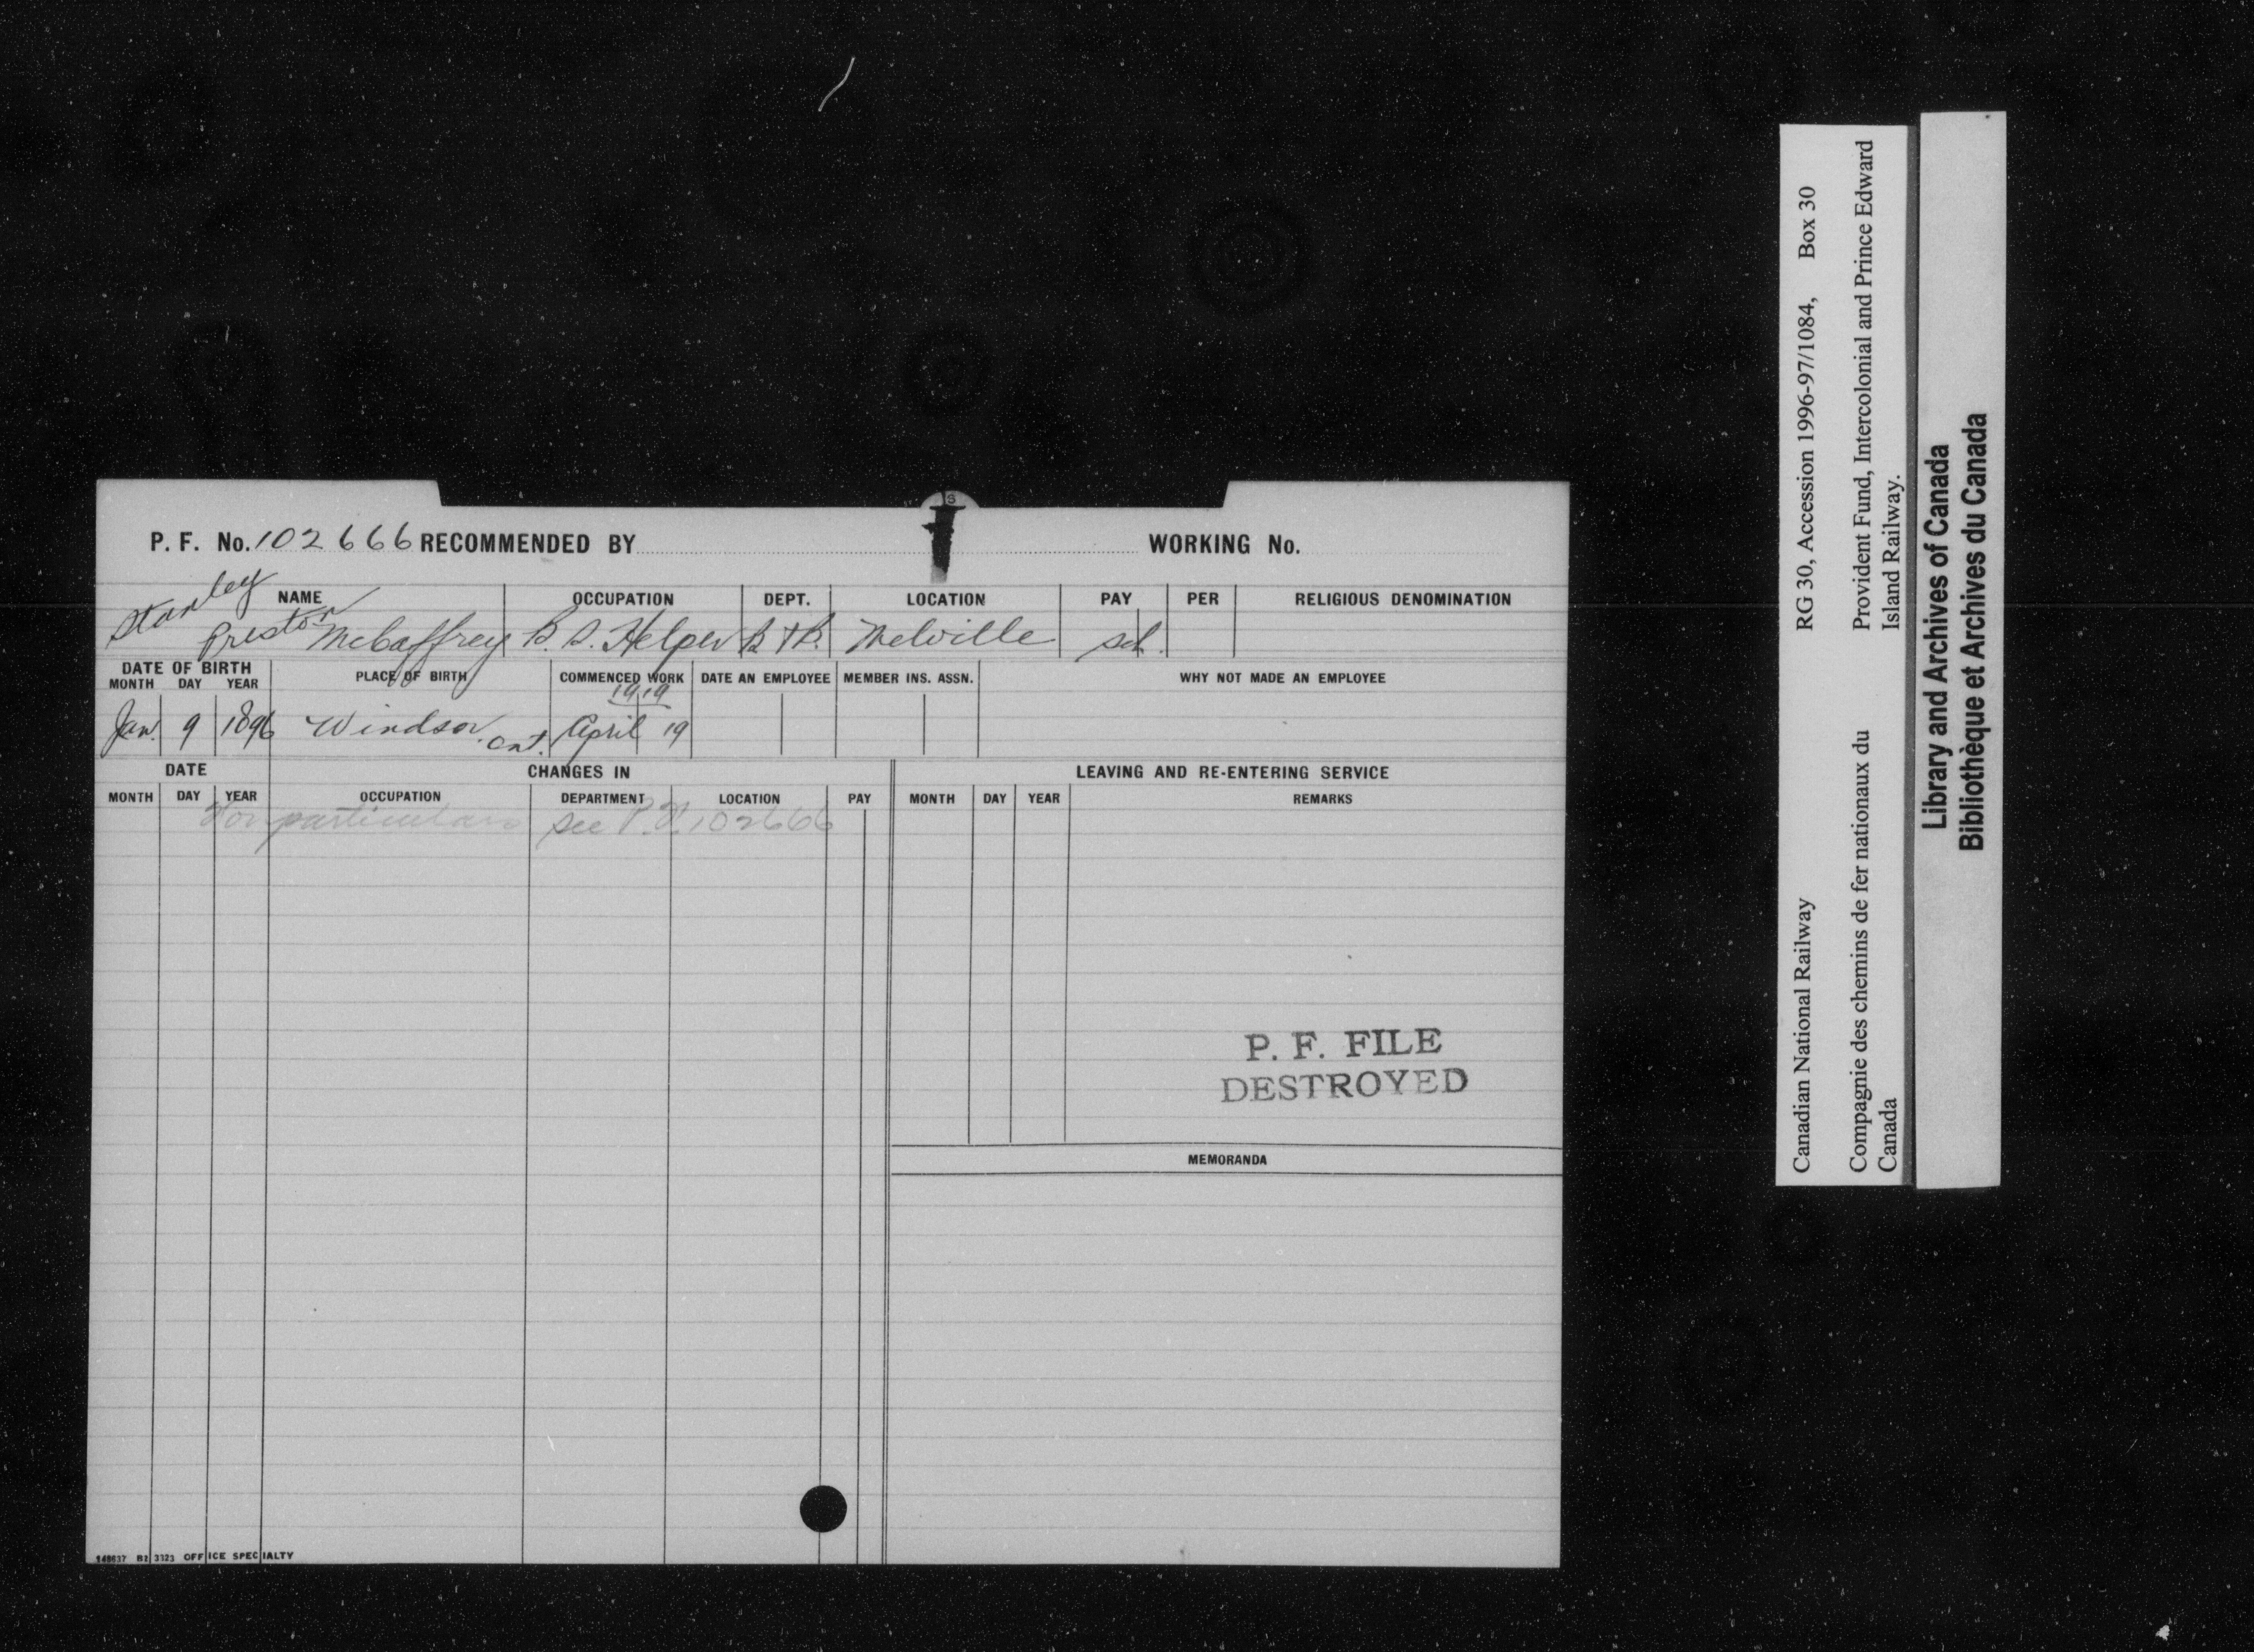 P. F. No. 102666 RECOMMENDED BY WORKING No.
NAME OCCUPATION DEPT. LOCATION PAY PER RELIGIOUS DENOMINATION
Stanley Preston McCaffrey B. S. Helper B & B. Melville Sch.
DATE OF BIRTH
MONTH DAY YEAR PLACE OF BIRTH COMMENCED WORK DATE AN EMPLOYEE MEMBER INS. ASSN. WHY NOT MADE AN EMPLOYEE
1919
Jan. 9 1896 Windsor. Ont. April 19
DATE CHANGES IN LEAVING AND RE-ENTERING SERVICE
MONTH DAY YEAR OCCUPATION DEPARTMENT LOCATION PAY MONTH DAY YEAR REMARKS
For particulars see P.F. 102666
P. F. FILE
DESTROYED
MEMORANDA
148637 B2 3323 OFFICE SPECIALTY
Canadian National Railway RG 30, Accession 1996-97/1084, Box 30
Compagnie des chemins de fer nationaux du Provident Fund, Intercolonial and Prince Edward
Canada Island Railway.
Library and Archives of Canada
Bibliothèque et Archives du Canada